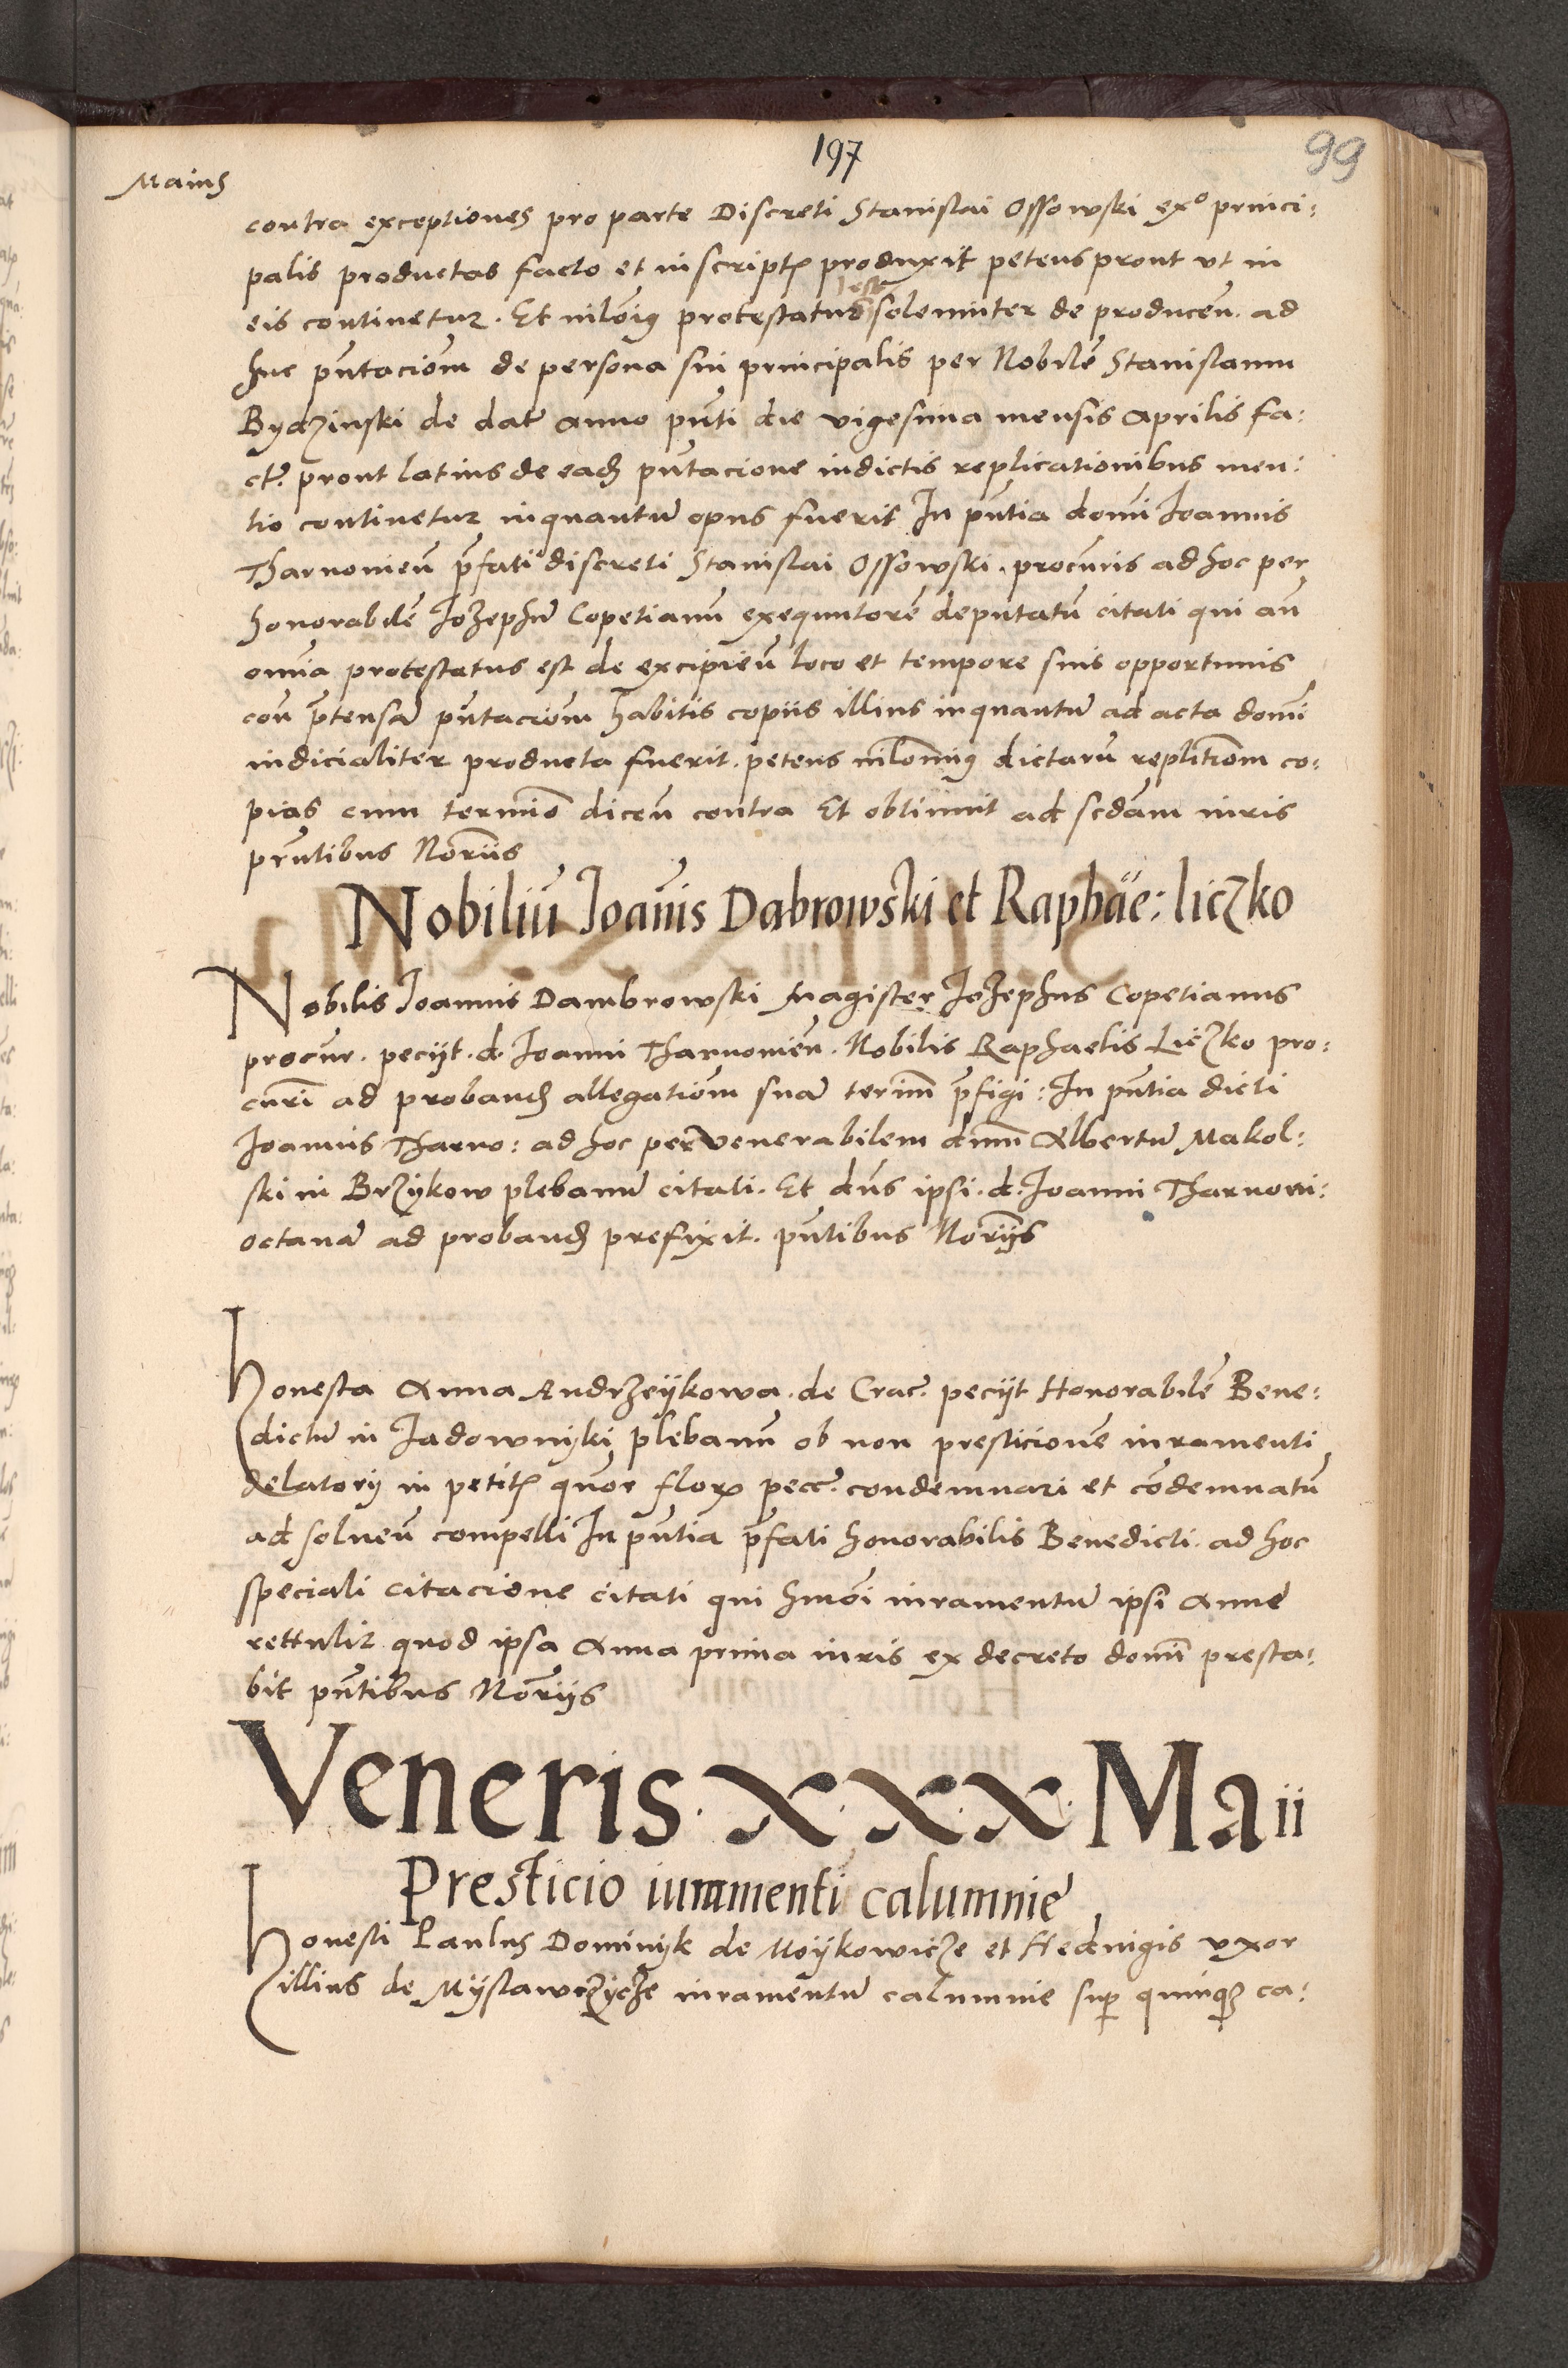 197
99
Maius
contra exceptiones pro parte Discreti Stanislai Ossowski exº princi:
palis productas facto et in script̃ produxit petens prout vt in
eis continetur. Et nilõig protestatus est solemniter de producen̄. ad
huc pñtaciom̄ de persona sui principalis per Nobilē Stanislaum
Bydzinski de dat̄ anno pñti die vigesima mensis Aprilis fa:
ct̃. prout latius de ead̄ pñtacione in dictis replicationibus men:
tio continetur inquantū opus fuerit In pñtia domī Joannis
Tharnouien̄ p̄fati discreti Stanislai Ossowski. procuris ad hoc per
honorabilē Jozephū Copetianū exequutorē deputatū citati qui an̄
omnia protestatus est de excipien̄ loco et tempore suis opportunis
con̄ p̄tensā pñtaciom̄ habitis copiis illius inquantū ad acta domī
iudicialiter producta fuerit. petens nilomīg dictarū replitiom̄ co:
pias cum termīo dicen̄ contra Et obtinuit ad scdam iuris
prñtibus Norīis
Nobiliū Joānis Dabrowski et Raphae: liczko
Nobilis Joannis Dambrowski Magister Jozephus Copetianus
procur. pecijt. d. Joanni Tharnouien̄. Nobilis Raphaelis Liczko pro:
curī ad proband̄ allegatiom̄ suā terim̄ p̄figi: In pñtia dicti
Joannis Tharno: ad hoc per venerabilem dnm̄ Albertū Makol:
ski in Brzykow plebanū citati. Et dn̄s ipsi. d. Joanni Tharnoui:
octauā ad proband̄ prefixit. pñtibus Norījs
Honesta Anna Andrzeÿkowa. de Crac̃. pecijt Honorabilē Bene:
dictū in Jadownÿki plebanū ob non presticionē iuramenti
delatorÿ in petit̃ quor̄ flor̄ pecc̃. condemnari et cōdemnatū
ad soluen̄ compelli In pñtia p̄fati honorabilis Benedicti. ad hoc
speciali citacione citati qui hmōi iuramentū ipsi Annę
rettulit quod ipsa Anna prima iuris ex decreto domī presta:
bit pñtibus Norījs
Veneris. X. X. X. Maii
Presticio iuramenti calumnię
Honesti Paulus Dominÿk de Moÿkowicze et Heduigis vxor
illius de Mÿslawczÿcze iuramentū calumnie sup̄ quinqz ca: